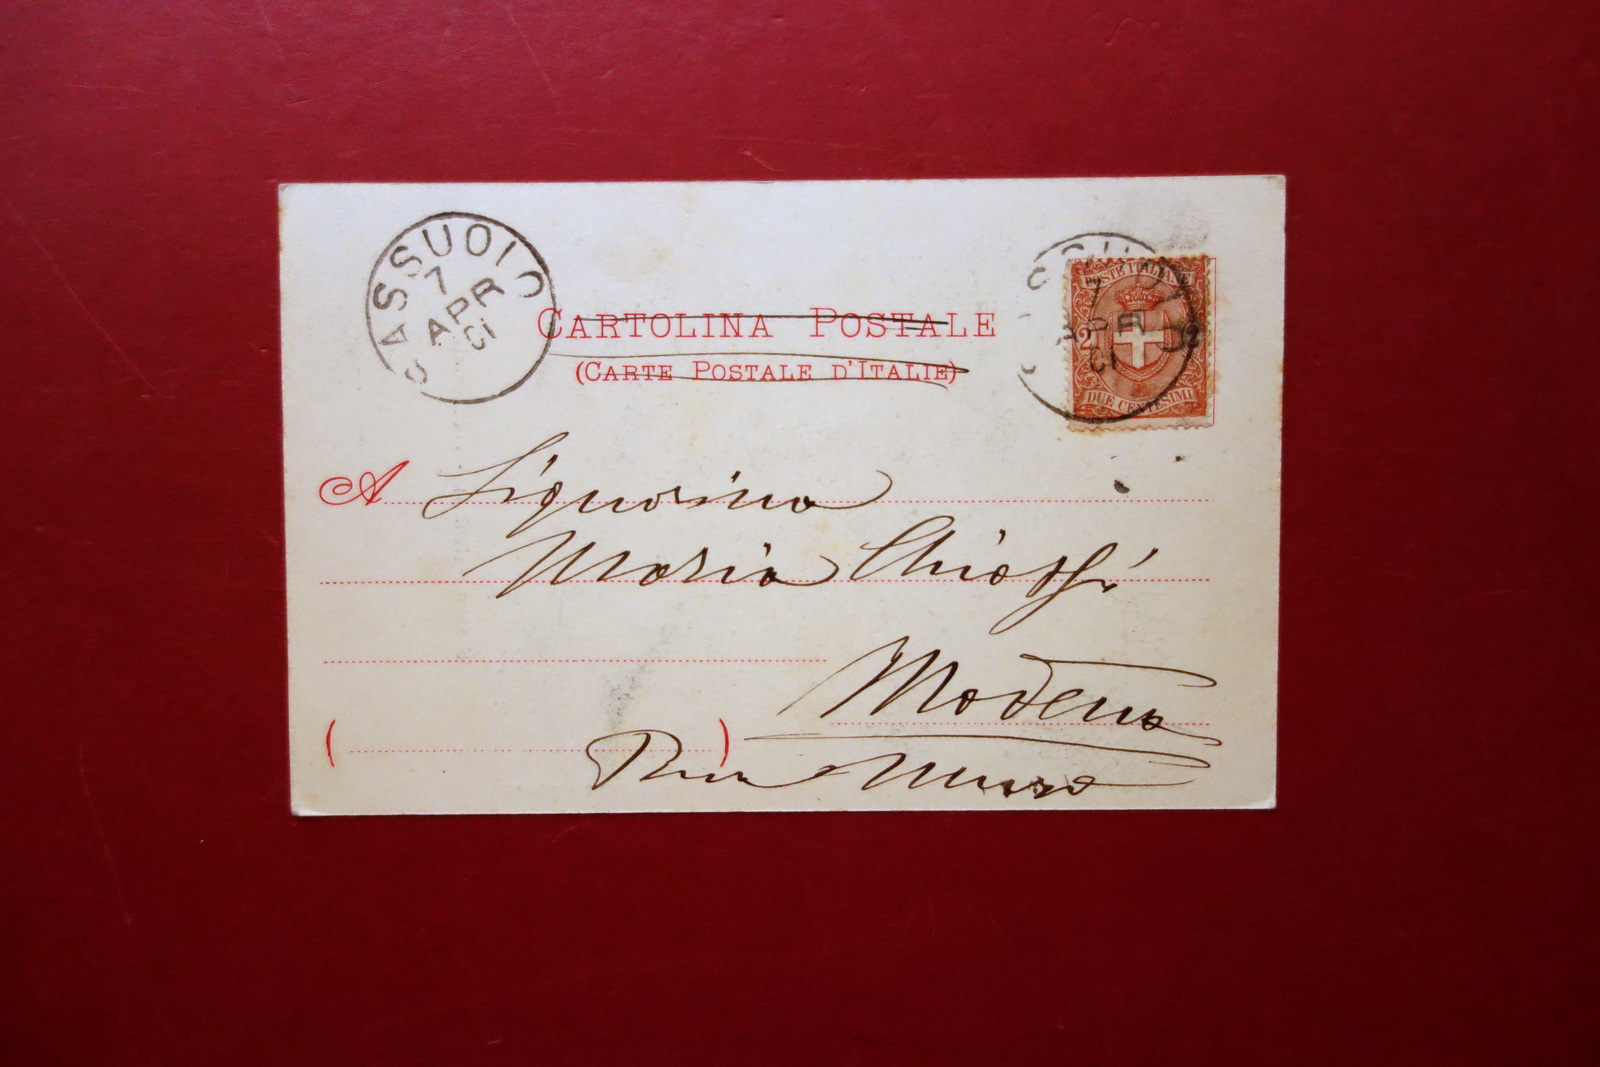 CASSUOLO
7
APR
01
CARTOLINA POSTALE
(CARTE POSTALE D'ITALIE)
POSTE ITALIANE
7
APR
01
2 2
DUE CENTESIMI
A Signorina
Maria Chiossi
Modena
( )
Rua Muro